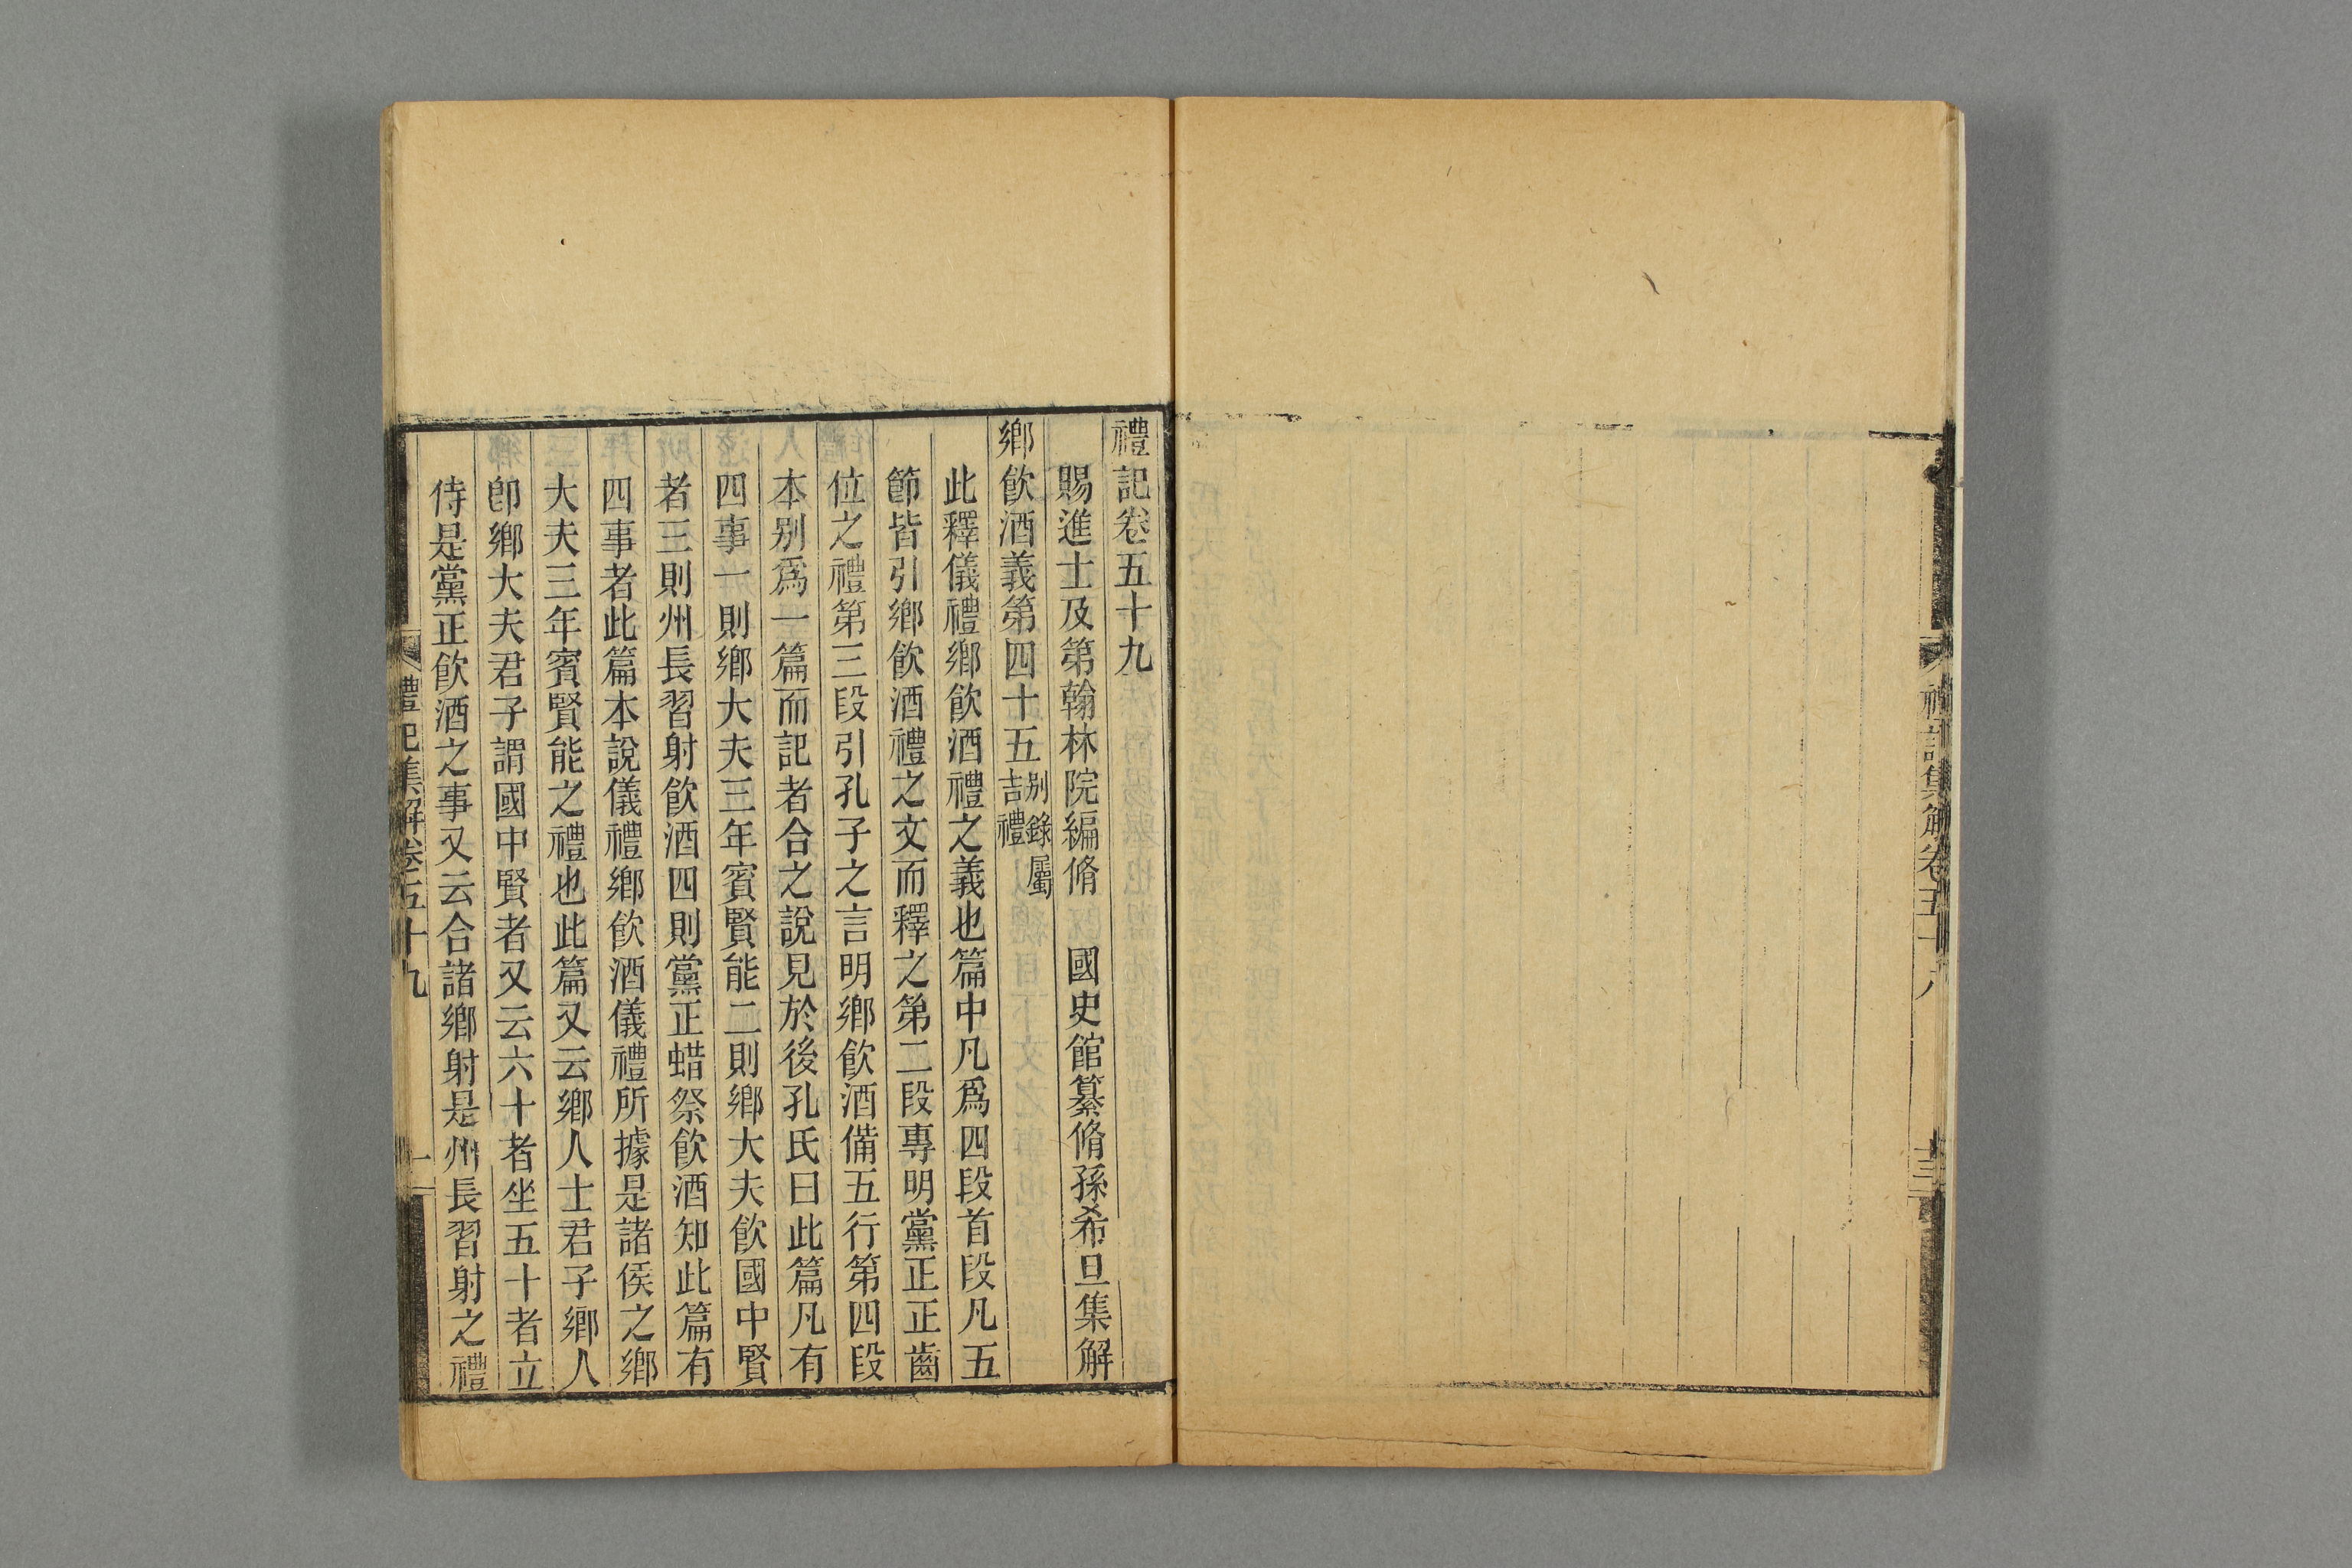 禮記集解卷五十八
禮記卷五十九
賜進士及第翰林院編脩 國史館纂脩孫希旦集解
鄉飲酒義第四十五別錄屬吉禮
此釋儀禮鄉飲酒禮之義也篇中凡爲四段首段凡五
節皆引鄉飲酒禮之文而釋之第二段專明黨正正齒
位之禮第三段引孔子之言明鄉飲酒備五行第四段
本別爲一篇而記者合之說見於後孔氏曰此篇凡有
四事一則鄉大夫三年賓賢能二則鄉大夫飲國中賢
者三則州長習射飲酒四則黨正蜡祭飲酒知此篇有
四事者此篇本說儀禮鄉飲酒儀禮所據是諸侯之鄉
大夫三年賓賢能之禮也此篇又云鄉人士君子鄉人
卽鄉大夫君子謂國中賢者又云六十者坐五十者立
侍是黨正飲酒之事又云合諸鄉射是州長習射之禮
禮記集解卷五十九
一